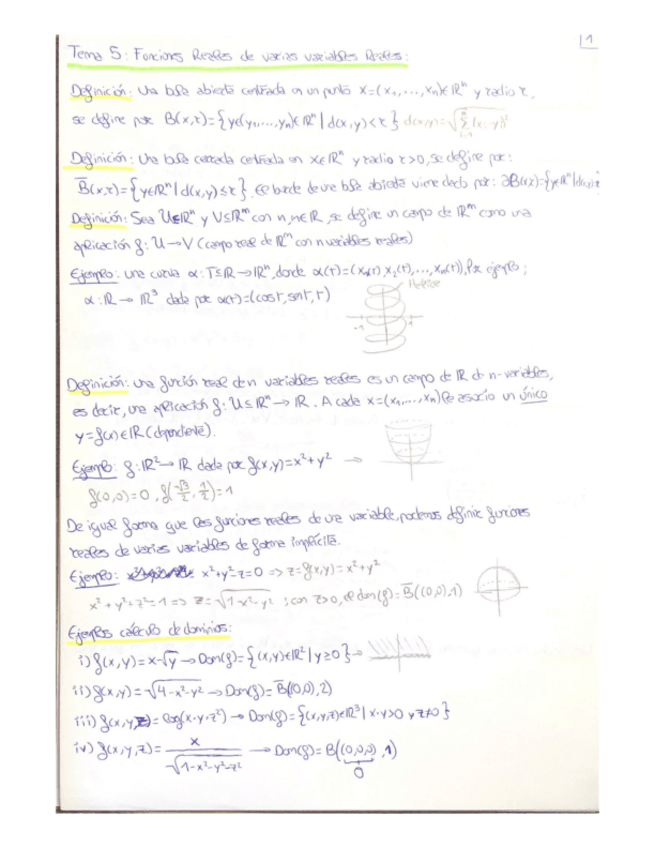 1
Tema 5: Funciones Reales de varias variables Reales:
Definición: Una bola abierta centrada en un punto x=(x₁,...,xₙ)∈ℝⁿ y radio r,
se define por B(x,r)={y∈(y₁,...,yₙ)∈ℝⁿ | d(x,y)<r} d(x,y)=√(Σ(xᵢ-yᵢ)²)
Definición: Una bola cerrada centrada en x∈ℝⁿ y radio r>0, se define por:
B̄(x,r)={y∈ℝⁿ | d(x,y)≤r}. El borde de una bola abierta viene dado por: ∂B(x,r)={y∈ℝⁿ | d(x,y)=
Definición: Sea U⊆ℝⁿ y V⊆ℝᵐ con n,m∈ℝ, se define un campo de ℝᵐ como una
aplicación f: U→V (campo real de ℝᵐ con n variables reales)
Ejemplo: una curva α: T⊆ℝ→ℝⁿ, donde α(t)=(x₁(t),x₂(t),...,xₙ(t)), Por ejemplo;
α: ℝ→ℝ³ dada por α(t)=(cost,sent,t)
Helice
-1 1
Definición: una función real de n variables reales es un campo de ℝ de n-variables,
es decir, una aplicación f: U⊆ℝⁿ→ℝ. A cada x=(x₁,...,xₙ) le asocio un único
y=f(x)∈ℝ (dependiente).
Ejemplo: f: ℝ²→ℝ dada por f(x,y)=x²+y² →
f(0,0)=0, f(√3/2, 1/2)=1
De igual forma que las funciones reales de una variable, podemos definir funciones
reales de varias variables de forma implícita.
Ejemplo: x²+y²-z=0 => z=f(x,y)=x²+y²
x²+y²+z²=1 => z=√(1-x²-y²); con z>0, el dom(f)=B̄((0,0),1)
Ejemplos cálculo de dominios:
i) f(x,y)=x-√y → Dom(f)={(x,y)∈ℝ² | y≥0} →
ii) f(x,y)=√(4-x²-y²) → Dom(f)=B̄((0,0),2)
iii) f(x,y,z)=log(x·y·z²) → Dom(f)={(x,y,z)∈ℝ³ | x·y>0 y z≠0}
iv) f(x,y,z)=x/√(1-x²-y²-z²) → Dom(f)=B((0,0,0),1)
0